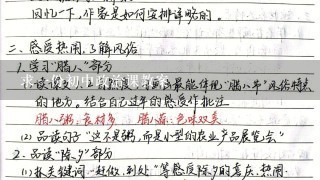 回忆一下，作家是如何安排详略的。
二、感受热闹，了解风俗
1. 学习“腊八”部分
求一份初中政治课教案
的地方。结合自己过年的感受作批注
腊八粥：食材多 腊八蒜：色味双美
(2) 品读句子“这不是粥，而是小型的农业产品展览会”
2. 品读“除夕”部分
(1) 抓关键词“赶做、到处”等感受除夕的喜庆、热闹